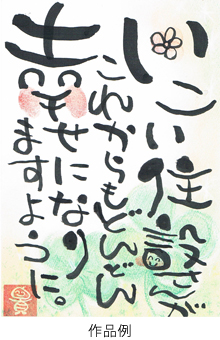 住設さんが
これからもどんどん
幸せになり
ますように。
作品例